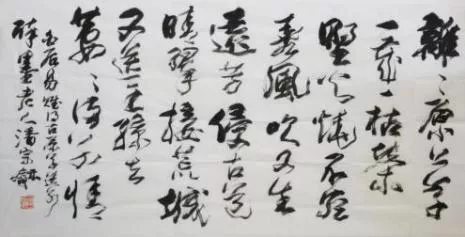 離〻原上草
一歲一枯榮
野火燒不盡
春風吹又生
遠芳侵古道
晴翠接荒城
又送王孫去
萋〻滿別情
白居易賦得古原草送別
醉墨老人潘宗